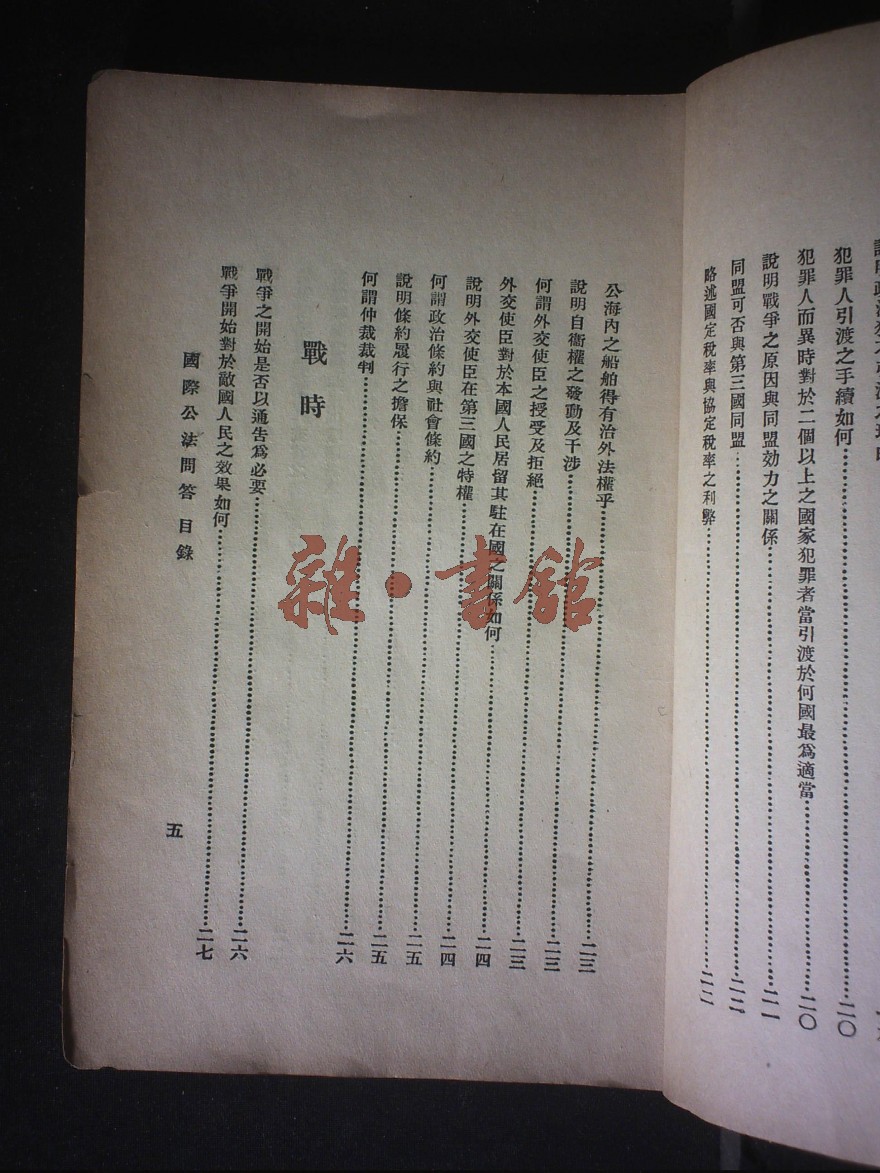 犯罪人引渡之手續如何……二〇
犯罪人而異時對於二個以上之國家犯罪者當引渡於何國最爲適當……二〇
說明戰爭之原因與同盟効力之關係……二一
同盟可否與第三國同盟……二二
略述國定稅率與協定稅率之利弊……二二
公海內之船舶得有治外法權乎……二三
說明自衞權之發動及干涉……二三
何謂外交使臣之授受及拒絕……二三
外交使臣對於本國人民居留其駐在國之關係如何……二四
說明外交使臣在第三國之特權……二四
何謂政治條約與社會條約……二五
說明條約履行之擔保……二五
何謂仲裁裁判……二六
戰時
戰爭之開始是否以通吿爲必要……二六
戰爭開始對於敵國人民之效果如何……二七
國際公法問答目錄
五
雜·書館